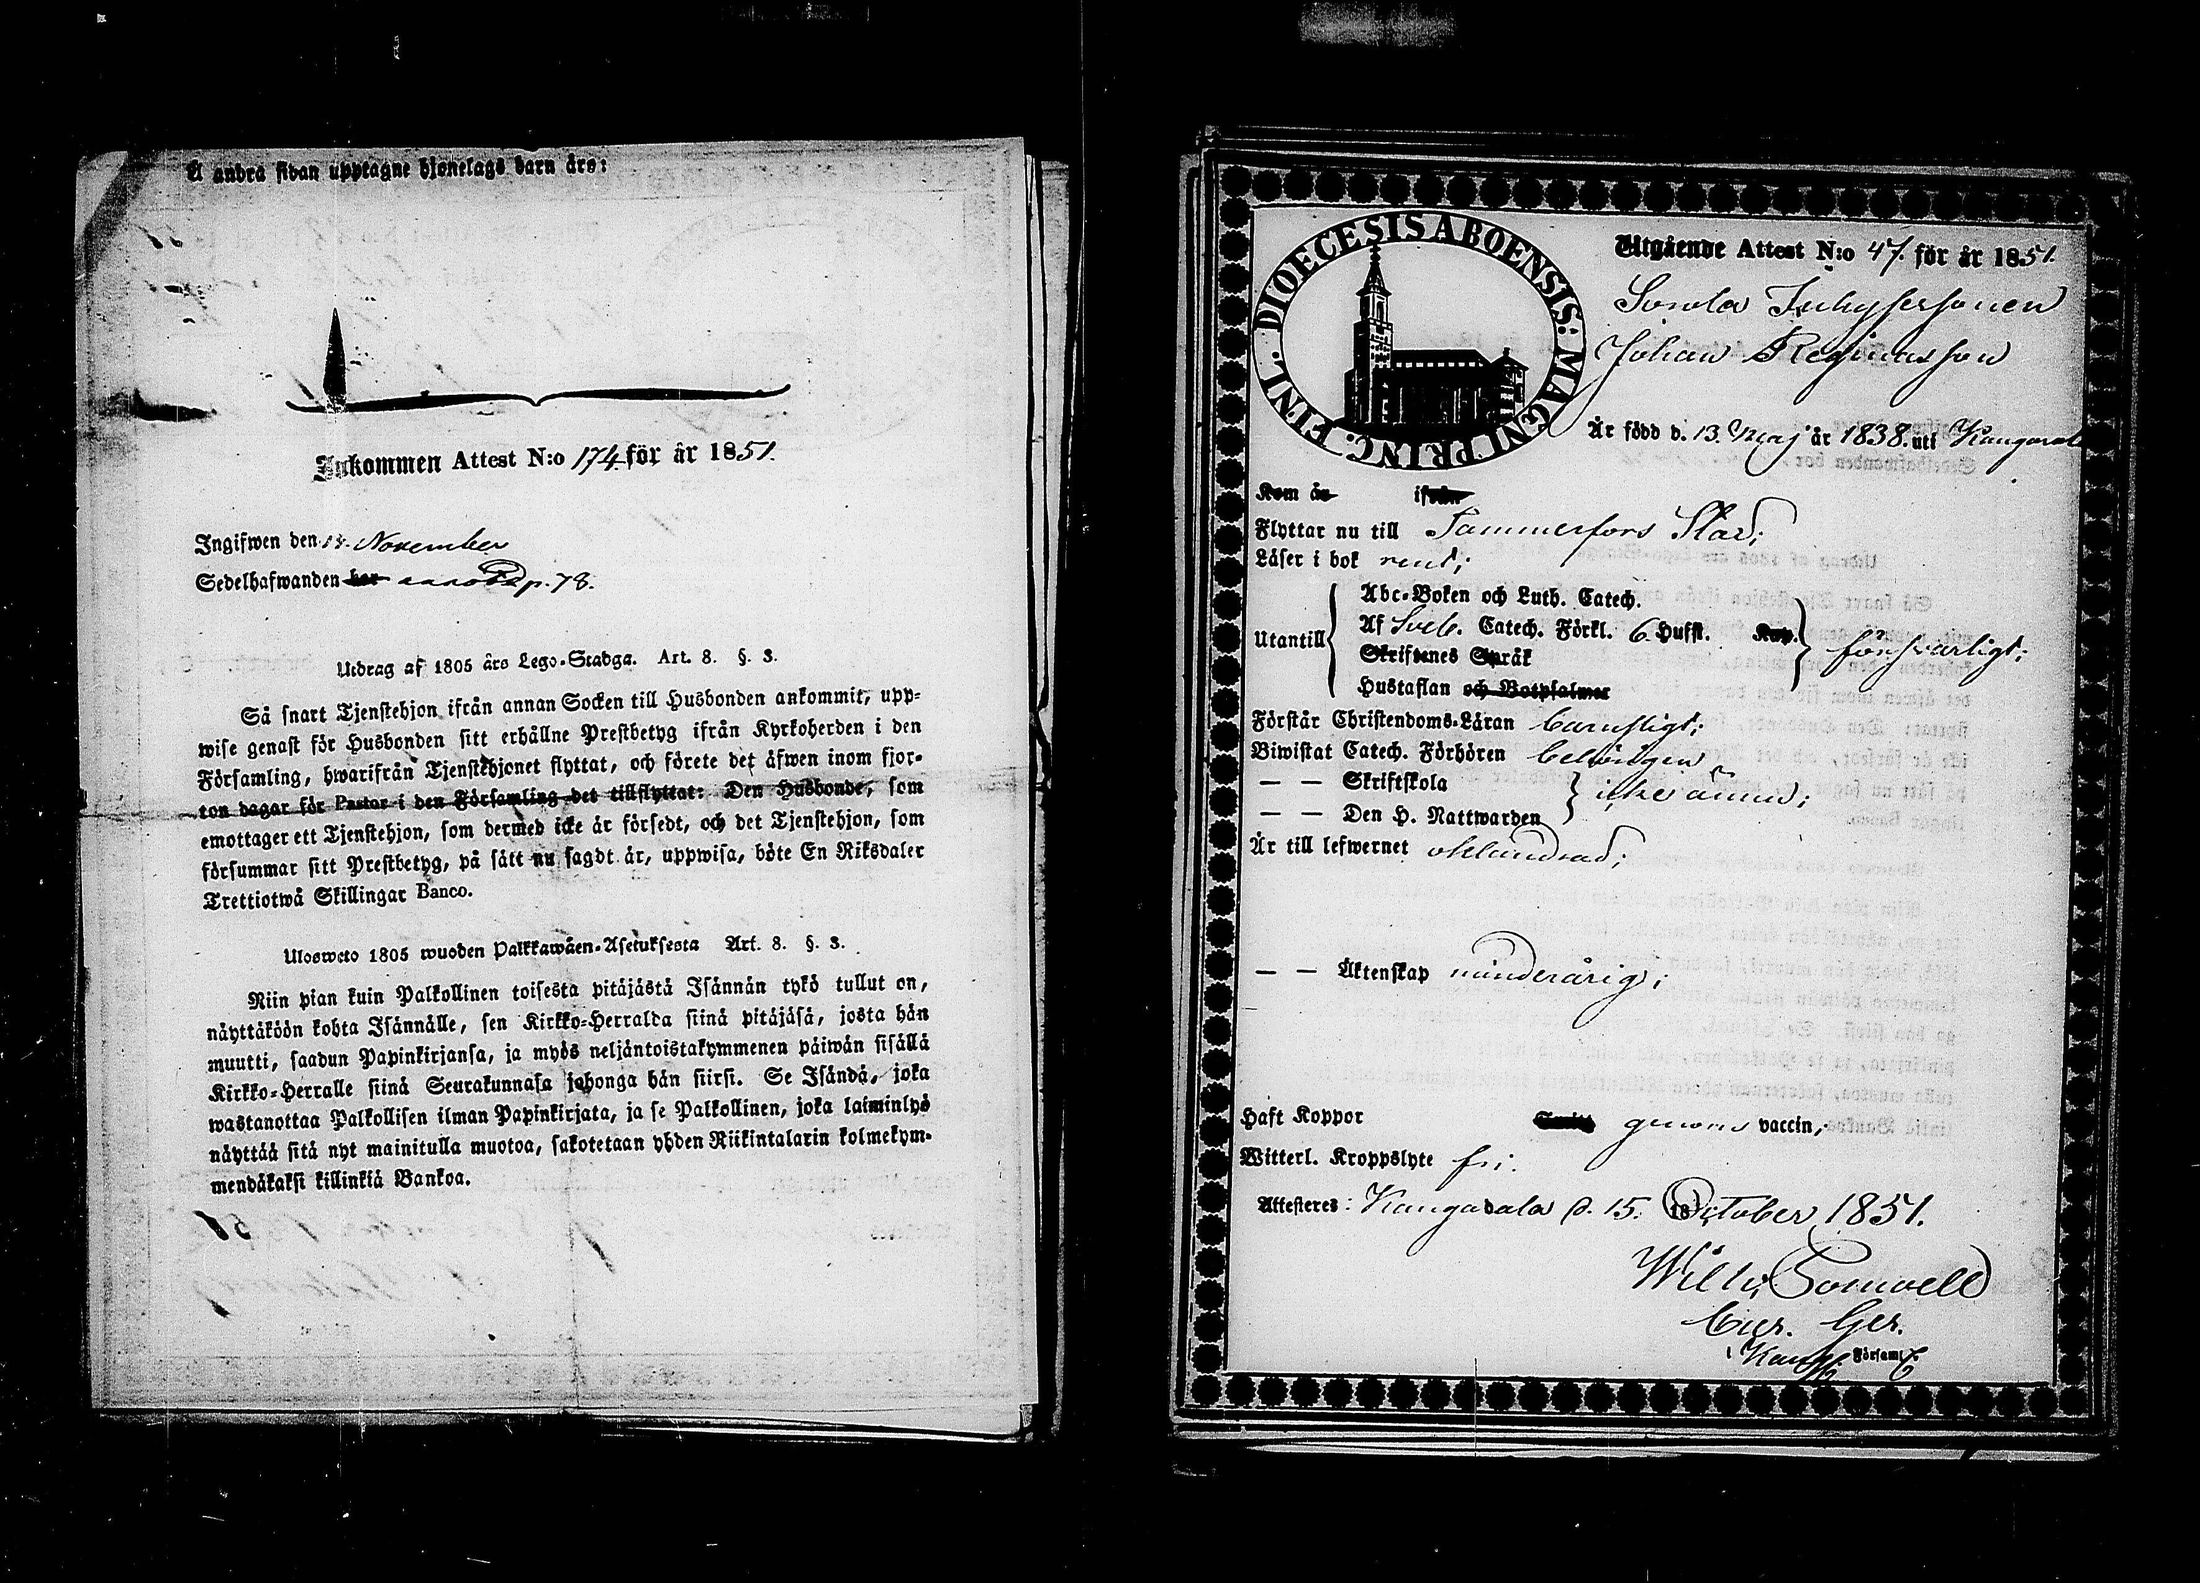 Å andra sidan upptagne hjonelags barn äro:
Inkommen Attest N:o 174 för år 1851.
Ingifwen den 13. November
Sedelhafwanden har anno p. 78.
Utdrag af 1805 års Lego-Stadga. Art. 8. §. 3.
Så snart Tjenstehjon ifrån annan Socken till Husbonden ankommit, upp-
wise genast för Husbonden sitt erhållne Prestbetyg ifrån Kyrkoherden i den
Församling, hwarifrån Tjenstehjonet flyttat, och förete det äfwen inom fjor-
ton dagar för Pastor i den Församling det tillflyttat: Den Husbonde, som
emottager ett Tjenstehjon, som dermed icke är försedt, och det Tjenstehjon, som
försummar sitt Prestbetyg, på sätt nu sagdt är, uppwisa, böte En Riksdaler
Trettiotwå Skillingar Banco.
Ulosweto 1805 wuoden Palkkawäen-Asetuksesta Art. 8. §. 3.
Niin pian kuin Palkollinen toisesta pitäjästä Isännän tykö tullut on,
näyttäköön kohta Isännälle, sen Kirkko-Herralda siinä pitäjäsä, josta hän
muutti, saadun Papinkirjansa, ja myös neljäntoistakymmenen päiwän sisällä
Kirkko-Herralle siinä Seurakunnasa johonga hän siirsi. Se Isändä, joka
wastanottaa Palkollisen ilman Papinkirjata, ja se Palkollinen, joka laiminlyö
näyttää sitä nyt mainitulla muotoa, sakotetaan yhden Riikintalarin kolmekym-
mendäkaksi killinkiä Bankoa.
DIOECESIS ABOENSIS: MAGNI PRINC. FINL.
Utgående Attest N:o 47. för år 1851.
Sorola Inhysessonen
Johan Reginasson
Är född d. 13. Maj år 1838. uti Kangasala
Kom år ifrån
Flyttar nu till Tammerfors Stad;
Läser i bok rent;
Utantill
Abc-Boken och Luth. Catech.
Af Sveb. Catech. Förkl. 6. Hufst. Kap.
Skriftenes Språk
Hustaflan och Botpsalmer
försvarligt;
Förstår Christendoms-Läran barnsligt;
Biwistat Catech. Förhören behörigen
— — Skriftskola
— — Den H. Nattwarden
icke ännu;
Är till lefwernet oklandrad;
— — Äktenskap minderårig;
Haft Koppor genom vaccin;
Witterl. Kroppslyte fri.
Attesteres: Kangasala d. 15. October 1851.
Wilh.
Församl